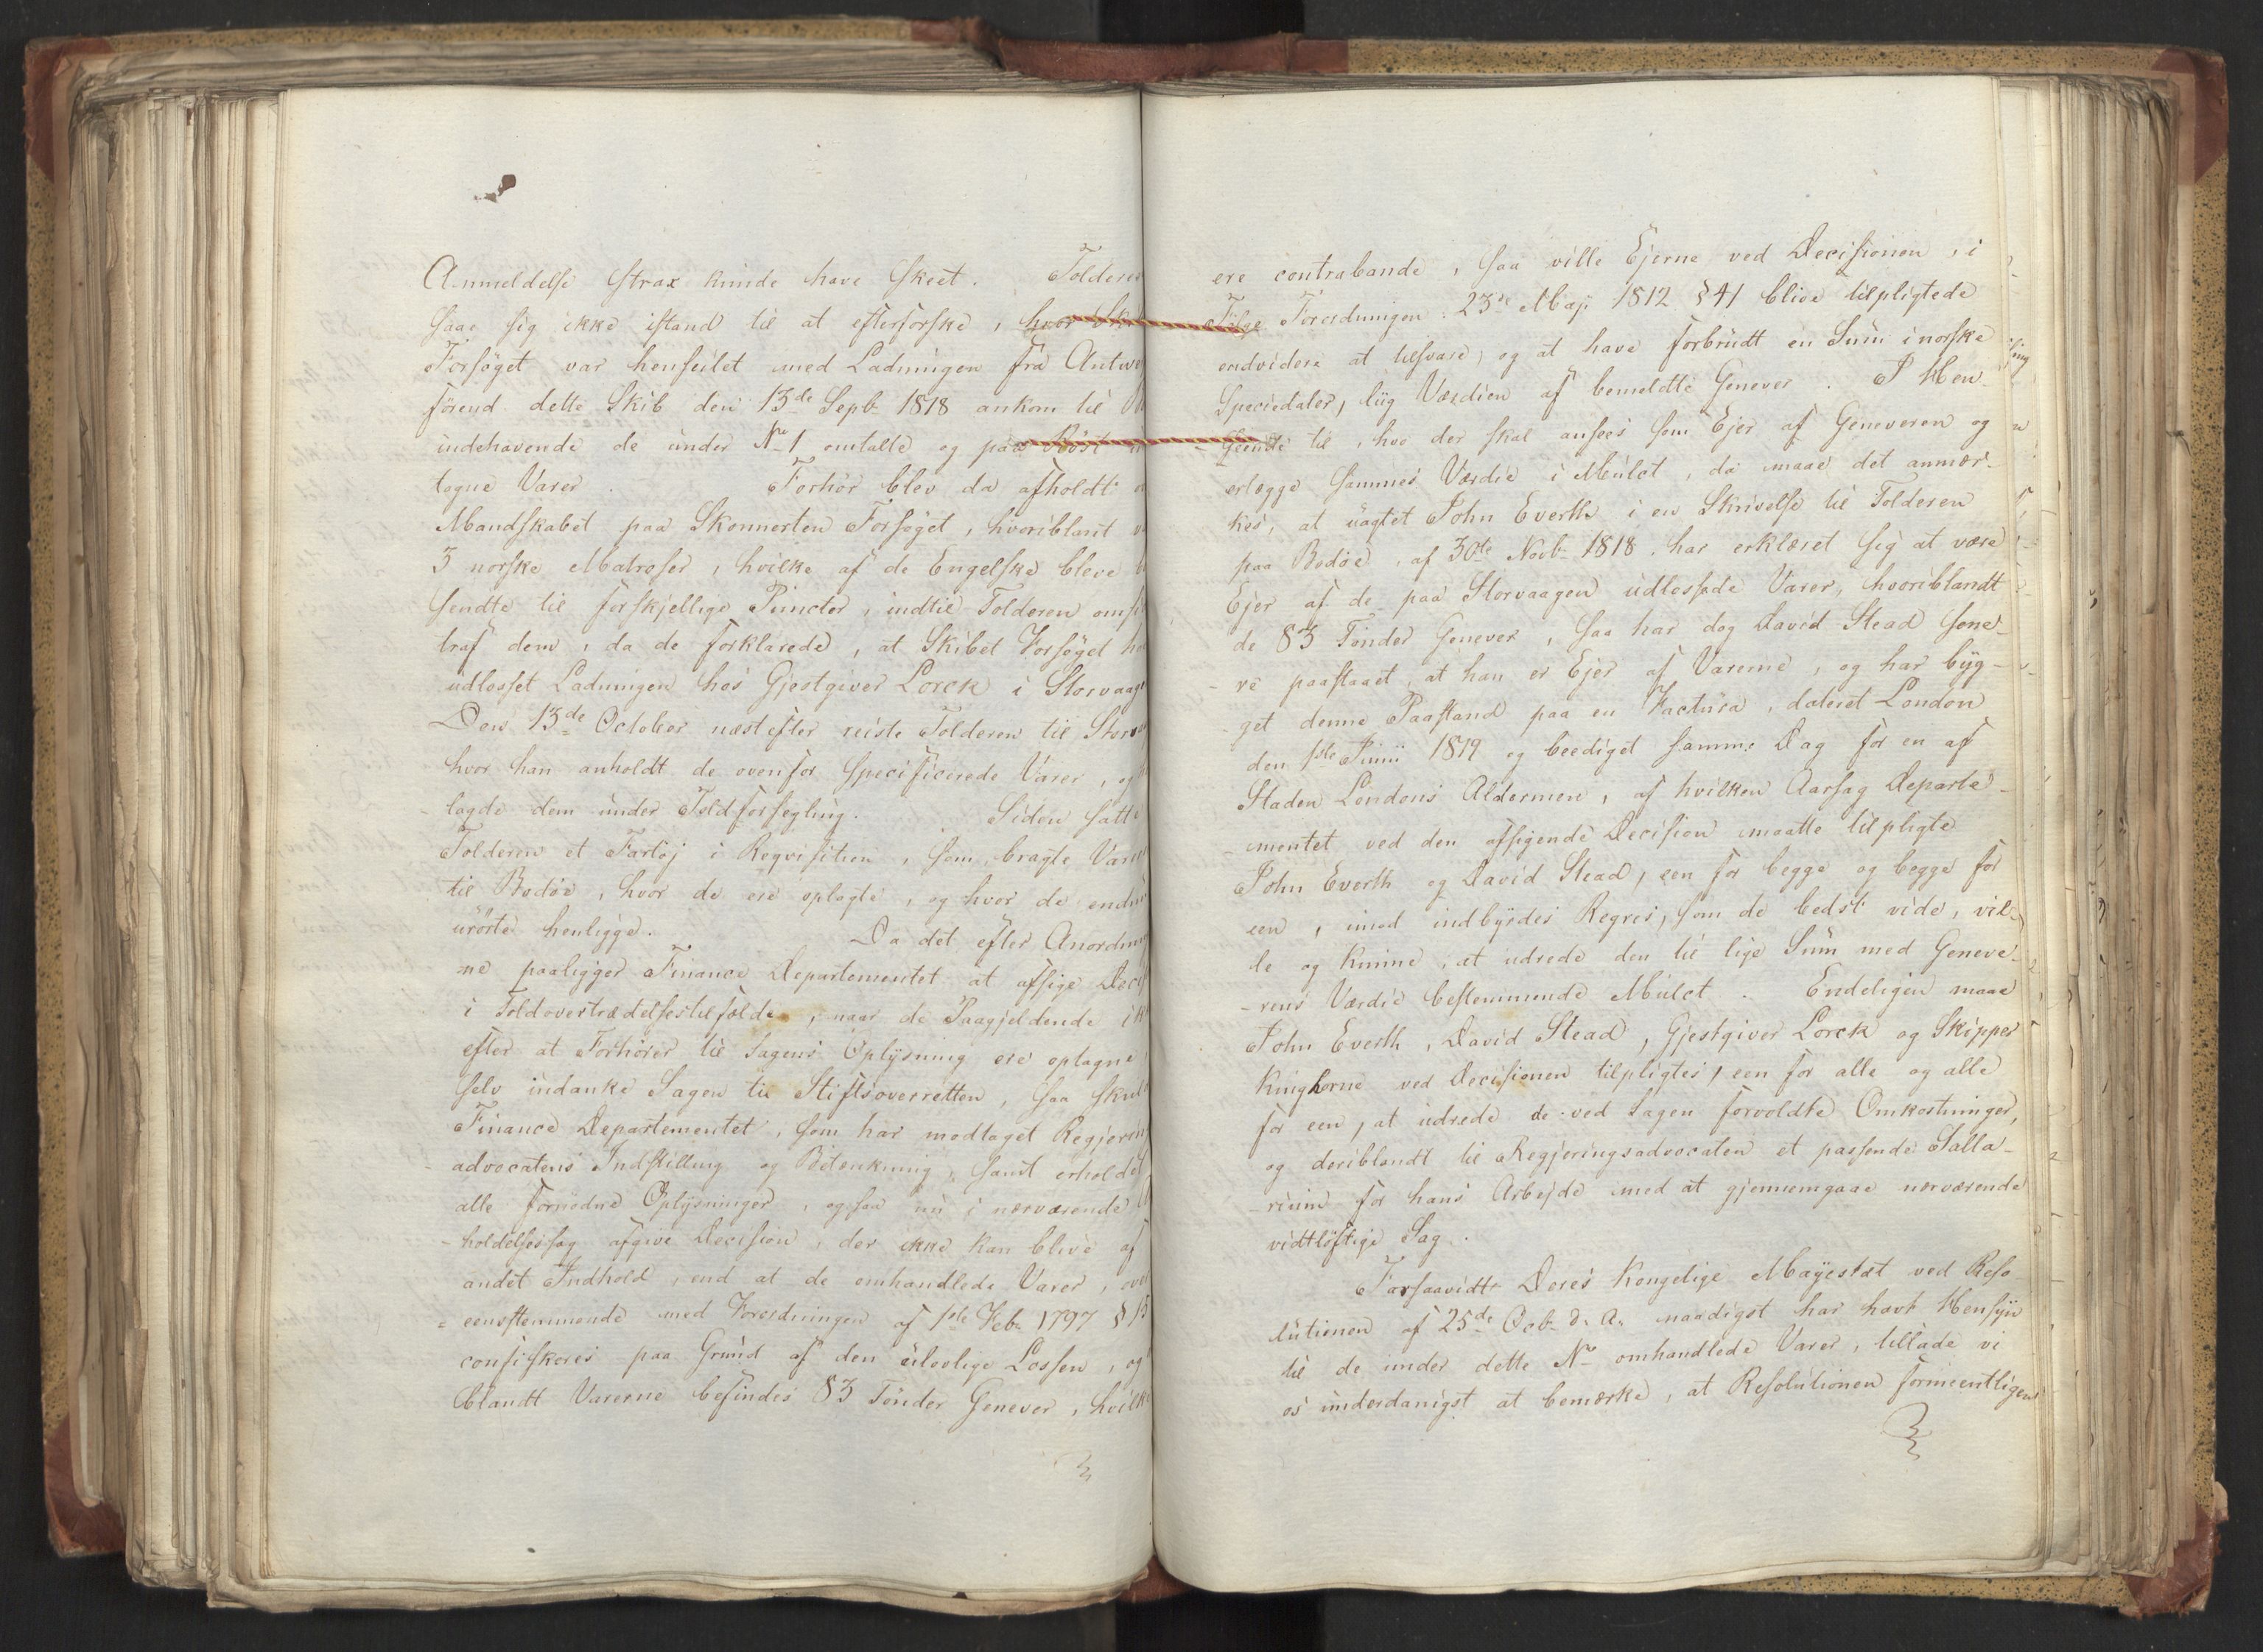 Anmeldelse strax kunde have skeet. Tolderen
saae sig ikke istand til at efterforske, hvor
Forsøget var henseilet med Ladningen fra
førend dette Skib den 13de Septb 1818 ankom til
indehavende de under No 1 omtalte og paa Røst
tagne Varer. Forhør blev da afholdt
Mandskabet paa Skonnerten Forsøget, hvoriblant
3 norske Matroser, hvilke af de Engelske bleve
sendte til forskjellige Puncter, indtil Tolderen
traf dem, da de forklarede, at Skibet Forsøget
udlosset Ladningen hos Gjestgiver Lorck i Storvaag
Den 13de October næstefter reiste Tolderen til
hvor han anholdt de ovenfor specificerede Varer, og
lagde dem under Toldforsegling. Siden satte
Tolderen et Fartøj i Reqvisition, som bragte
til Bodøe, hvor de ere oplagte, og hvor de
urørte henligge. Da det efter
ne paaligger Finance Departementet at afsige
i Toldovertrædelsestilfælde, naar de Paagjeldende
efter at Forhører til Sagens Oplysning ere optagne
selv indanke Sagen til Stiftsoverretten, saa
Finance Departementet, som har modtaget
advocatens Indstilling og Betænkning, samt
alle fornødne Oplysninger, ogsaa nu i nærværende
holdelsessag afgive Decision, der ikke kan blive af
andet Indhold, end at de omhandlede Varer,
eensstemmende med Forordningen af 1ste Feb. 1797 §
confiskeres paa Grund af den ulovlige Lossen, og
blandt Varerne befindes 83 Tønder Genever,
ere contrabande, saa ville Ejerne ved Decisionen, i
Følge Forordningen 23de Maji 1812 § 41 blive tilpligtede
endvidere at tilsvare, og at have forbrudt en Sum i norske
Speciedaler, liig Værdien af bemeldte Genever. I Hen-
seende til, hvo der skal ansees som Ejer af Geneveren og
erlægge sammes Værdie i Mulct, da maae det anmær-
kes, at uagtet John Everth i en Skrivelse til Tolderen
paa Bodøe, af 30te Novb. 1818. har erklæret sig at være
Ejer af de paa Storvaagen udlossede Varer, hvoriblandt
de 83 Tønder Genever, saa har dog David Stead sene-
re paastaaet, at han er Ejer af Varerne, og har byg-
get denne Paastand paa en Factura, dateret London
den 1ste Junii 1819 og beediget samme Dag for en af
Staden Londons Aldermen, af hvilken Aarsag Departe-
mentet ved den afsigende Decision maatte tilpligte
John Everth og David Stead, een for begge og begge for
een, imod indbyrdes Regres, som de bedst vide, vil-
le og kunne, at udrede den til lige Sum med Geneve-
rens Værdie bestemmende Mulct. Endeligen maae
John Everth, David Stead, Gjestgiver Lorck og Skipper
Kinghorne ved Decisionen tilpligtes, een for alle og alle
for een, at udrede de ved Sagen forvoldte Omkostninger,
og deriblandt til Regjeringsadvocaten et passende Salla-
rium for hans Arbejde med at gjennemgaae nærværende
vidtløftige Sag.
Forsaavidt Deres Kongelige Mayestæt ved Reso-
lutionen af 25de Octb. d. A. naadigst har havt Hensyn
til de under dette No omhandlede Varer, tillade vi
os underdanigst at bemærke, at Resolutionen formeentligen